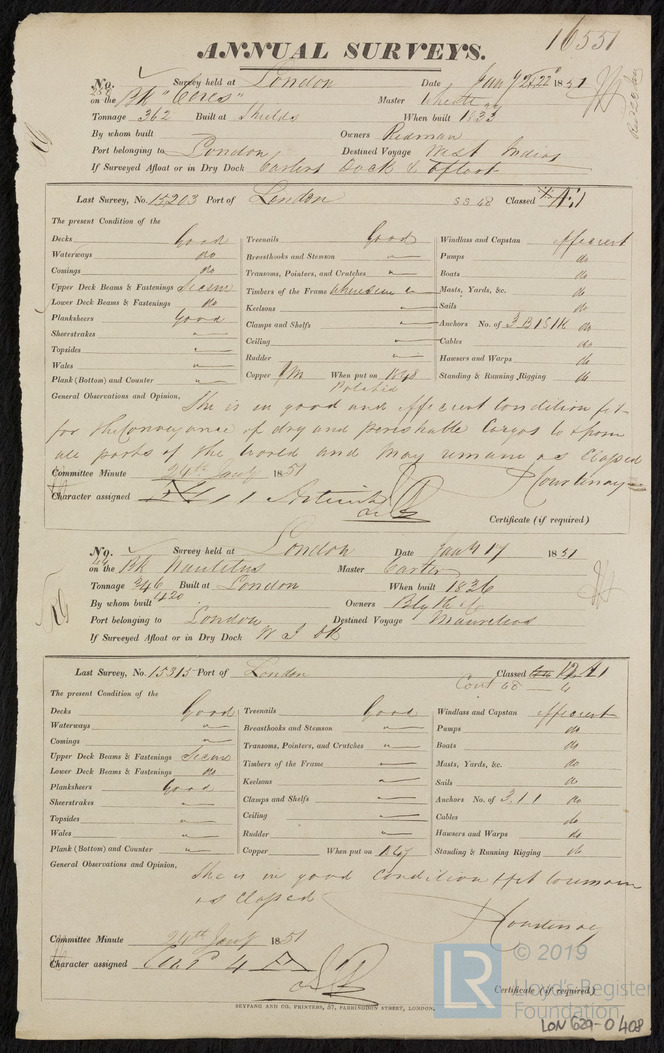 16551
ANNUAL SURVEYS.
No. Survey held at London Date Jany 1851
on the Bk "Ceres" Master
Tonnage 362 Built at Shields When built 1833
By whom built Owners Redman
Port belonging to London Destined Voyage West Indies
If Surveyed Afloat or in Dry Dock Dock & Afloat
Last Survey, No. 15203 Port of London SS 48 Classed Æ1
The present Condition of the
Decks Good Treenails Good Windlass and Capstan Efficient
Waterways do Breasthooks and Stemson " Pumps do
Comings do Transoms, Pointers, and Crutches " Boats do
Upper Deck Beams & Fastenings Secure Timbers of the Frame where seen Masts, Yards, &c. do
Lower Deck Beams & Fastenings do Keelsons " Sails do
Planksheers Good Clamps and Shelfs " Anchors No. of 3 B 1 S 1 K do
Sheerstrakes " Ceiling " Cables do
Topsides " Rudder " Hawsers and Warps do
Wales " Copper When put on 1848 Standing & Running Rigging do
Plank (Bottom) and Counter "
General Observations and Opinion, She is in good and efficient condition fit
for the Conveyance of dry and perishable Cargos to & from
all parts of the World and may remain as Classed
Committee Minute 24th Jany 1851 Courtenay
Character assigned
Certificate (if required)
No. Survey held at London Date Jany 17 1851
on the Bk Nautilus Master Carter
Tonnage 346 Built at London When built 1836
420
By whom built Owners Blyth & Co
Port belonging to London Destined Voyage Mauritius
If Surveyed Afloat or in Dry Dock W I Dk
Last Survey, No. 15315 Port of London Classed 12 A1
Cont 48 4
The present Condition of the
Decks Good Treenails Good Windlass and Capstan Efficient
Waterways " Breasthooks and Stemson " Pumps do
Comings " Transoms, Pointers, and Crutches " Boats do
Upper Deck Beams & Fastenings Secure Timbers of the Frame " Masts, Yards, &c. do
Lower Deck Beams & Fastenings do Keelsons " Sails do
Planksheers Good Clamps and Shelfs " Anchors No. of 3.1.1 do
Sheerstrakes " Ceiling " Cables do
Topsides " Rudder " Hawsers and Warps do
Wales " Copper When put on Standing & Running Rigging do
Plank (Bottom) and Counter "
General Observations and Opinion, She is in good condition & fit to remain
as Classed
Courtenay
Committee Minute 24th Jany 1851
Character assigned Cont 4
Certificate (if required)
SEYFANG AND CO. PRINTERS, 57, FARRINGDON STREET, LONDON.
LR © 2019
Lloyd's Register
Foundation
LON 629-0408